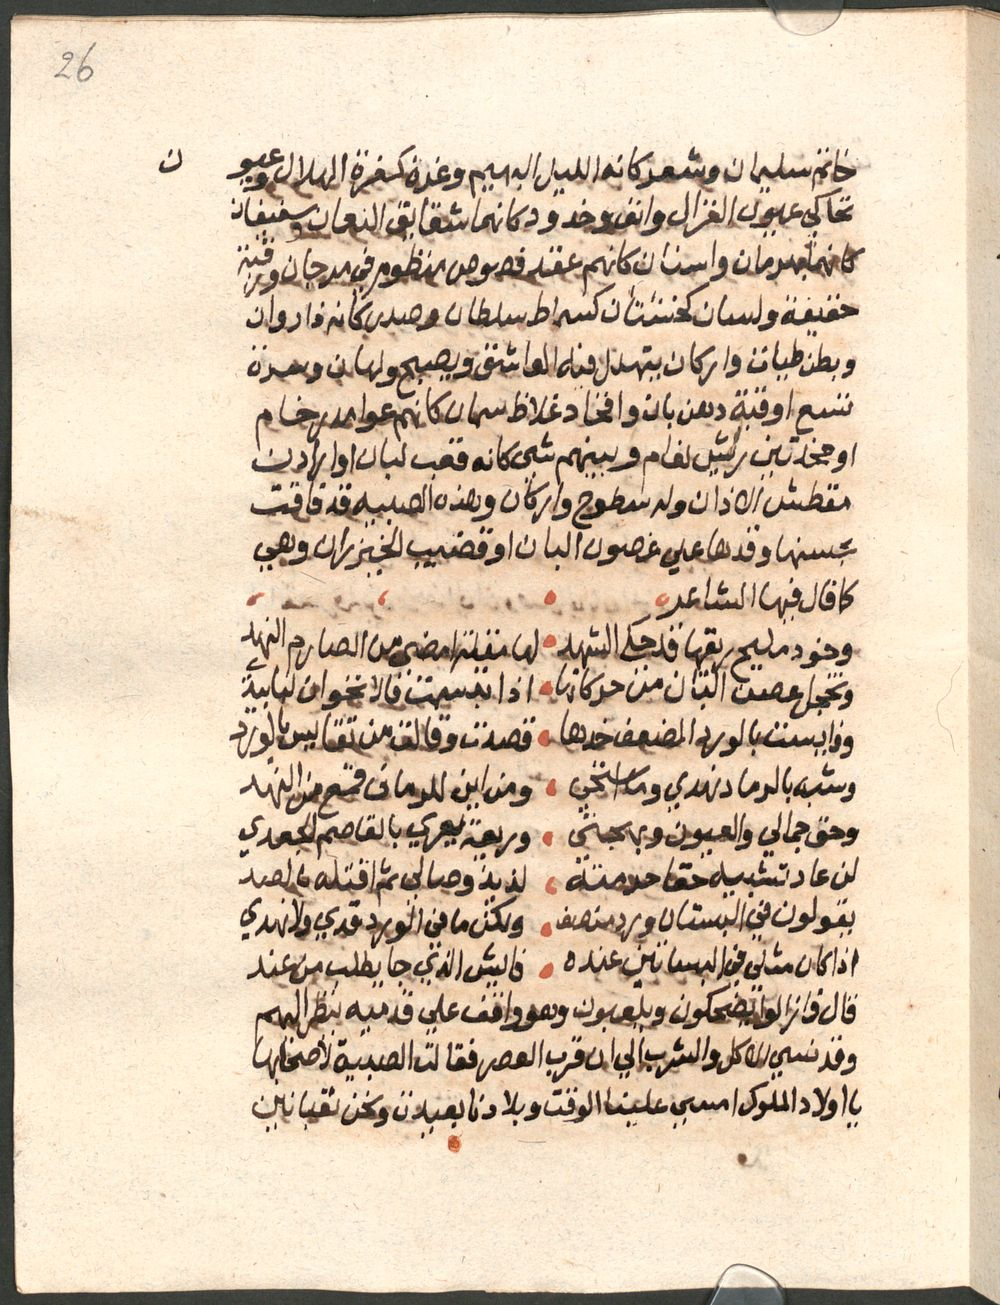 26
خاتم سليمان وشعر كانه الليل البهيم وغرة كغرة الهلال وعيون
تحاكي عيون الغزال وانف وخدود كانهما شقايق النعمان وشفيفات
كانهما بهرمان واسنان كانهم عقد فصوص منظوم في مرجان ورقبة
خفيفة ولسان كسراط سلطان وصدر كانه شادروان
وبطن طيات واركان يتهدل فيه العاشق ويصبح ولهان وسرة
تسع اوقية دهن بان وافخاد غلاظ سمان كانهم عواميد رخام
او مخدتين بريش نعام وبينهم شي كانه قعب لبان او ارنب
مقطش الاذان وله سطوح واركان وهذه الصبيه قد فاقت
بحسنها وقدها علي غصون البان او قضيب الخيزران وهي
كما قال فيها الشاعر
وخود مليح ريقها قد حكي الشهد لها مقلة امضي من الصارم الهند
وتخجل غصن البان من حركاتها اذا تبسمت فالاقحوان لها يبد
وقايست بالورد المضعف خدها فصدت وقالت من تقايس بالورد
وشبه بالرمان نهدي وما استحي ومن اين للرمان فرع من النهد
وحق جمالي والعيون ومهجتي
لان عاد تشبيه حقا حرمته لذيذ وصالي ثم اقتله بالصد
يقولون في البستان ورد مصفف ولكن ما في الورد قدي ولا نهدي
اذا كان مثلي في البساتين عنده فايش الذي جا يطلب من عند
قال فازالوا يضحكون ويلعبون وهو واقف علي قدميه ينظر اليهم
وقد نسي الاكل والشرب الي ان قرب العصر فقالت الصبية لاصحابها
يا اولاد الملوك امسي علينا الوقت وبلادنا بعيدن ونحن تعبانين